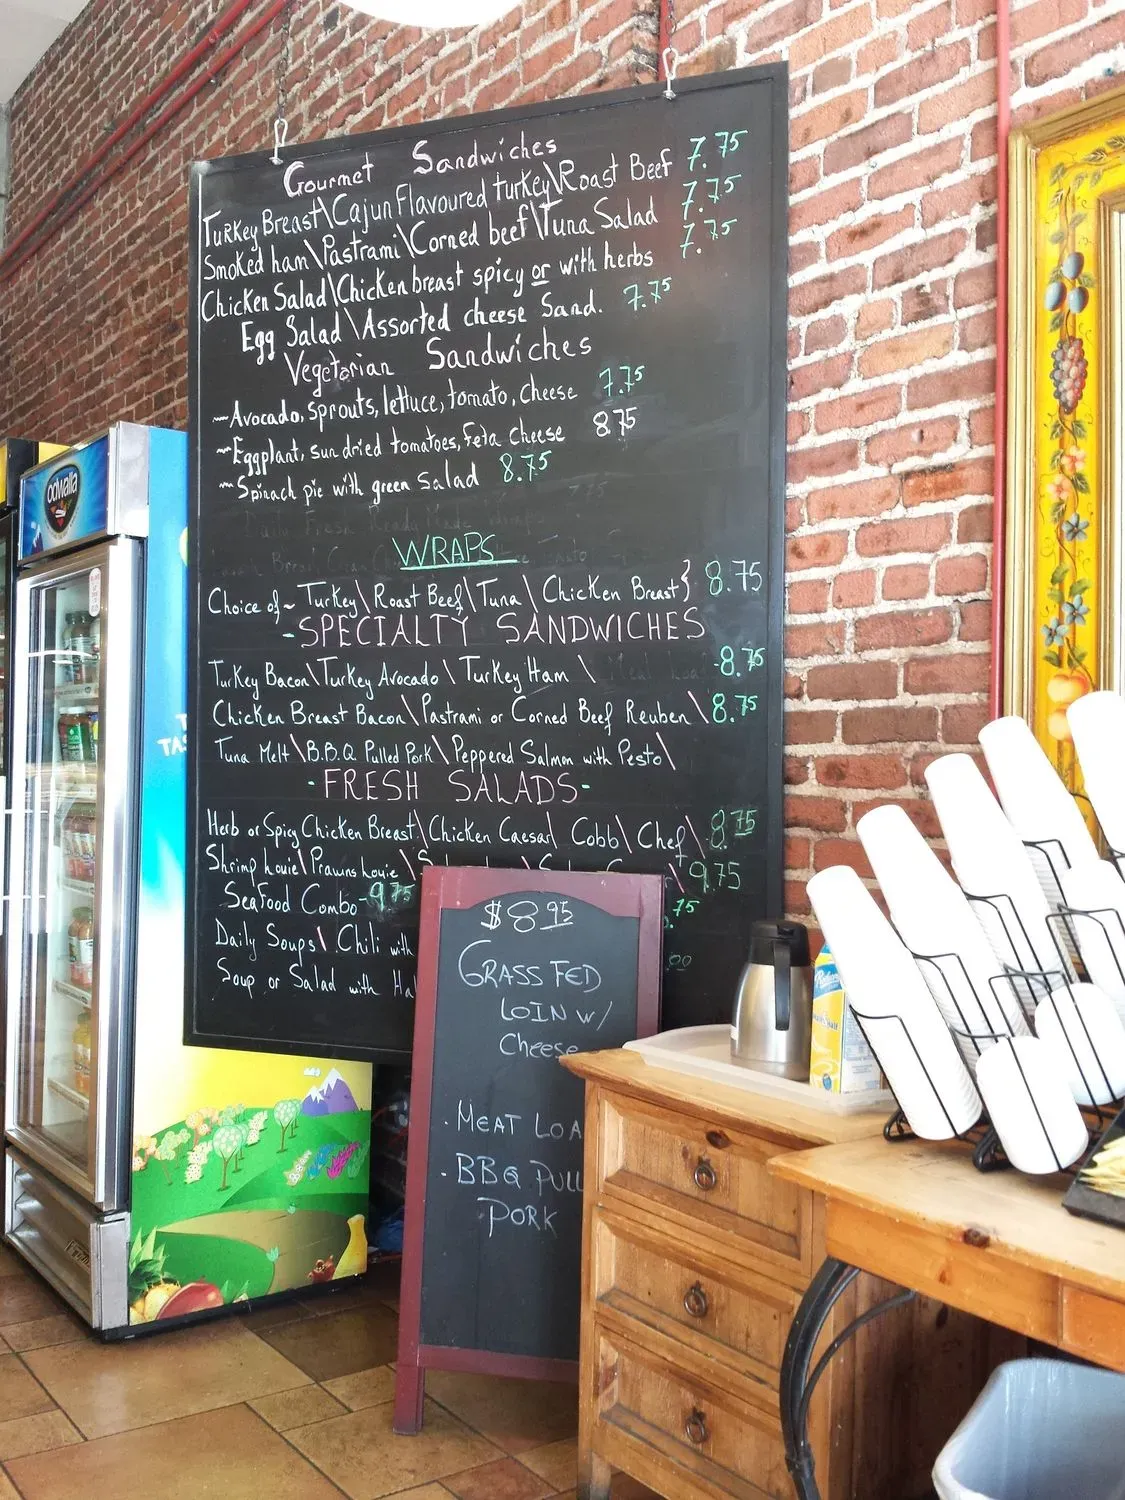 Gourmet Sandwiches
Turkey Breast\Cajun Flavoured turkey\Roast Beef 7.75
Smoked ham\Pastrami\Corned beef\Tuna Salad 7.75
Chicken Salad\Chicken breast spicy or with herbs 7.75
Egg Salad\Assorted cheese Sand. 7.75
Vegetarian Sandwiches
~Avocado, sprouts, lettuce, tomato, cheese 7.75
~Eggplant, sun dried tomatoes, Feta cheese 8.75
~Spinach pie with green Salad 8.75
Daily Fresh Ready Made
WRAPS
Choice of ~ Turkey\Roast Beef\Tuna\Chicken Breast} 8.75
-SPECIALTY SANDWICHES
Turkey Bacon\Turkey Avocado\Turkey Ham\ Meat Loaf -8.75
Chicken Breast Bacon\Pastrami or Corned Beef Reuben\8.75
Tuna Melt\B.B.Q Pulled Pork\Peppered Salmon with Pesto\
-FRESH SALADS-
Herb or Spicy Chicken Breast\Chicken Caesar\Cobb\Chef\8.75
Shrimp Louie\Prawns Louie\ \9.75
Seafood Combo-9.75 .75
Daily Soups\Chili with .00
Soup or Salad with Ha
$8.95
GRASS FED
LOIN W/
Cheese
·MEAT LOA
·BBQ PULL
PORK
odwalla